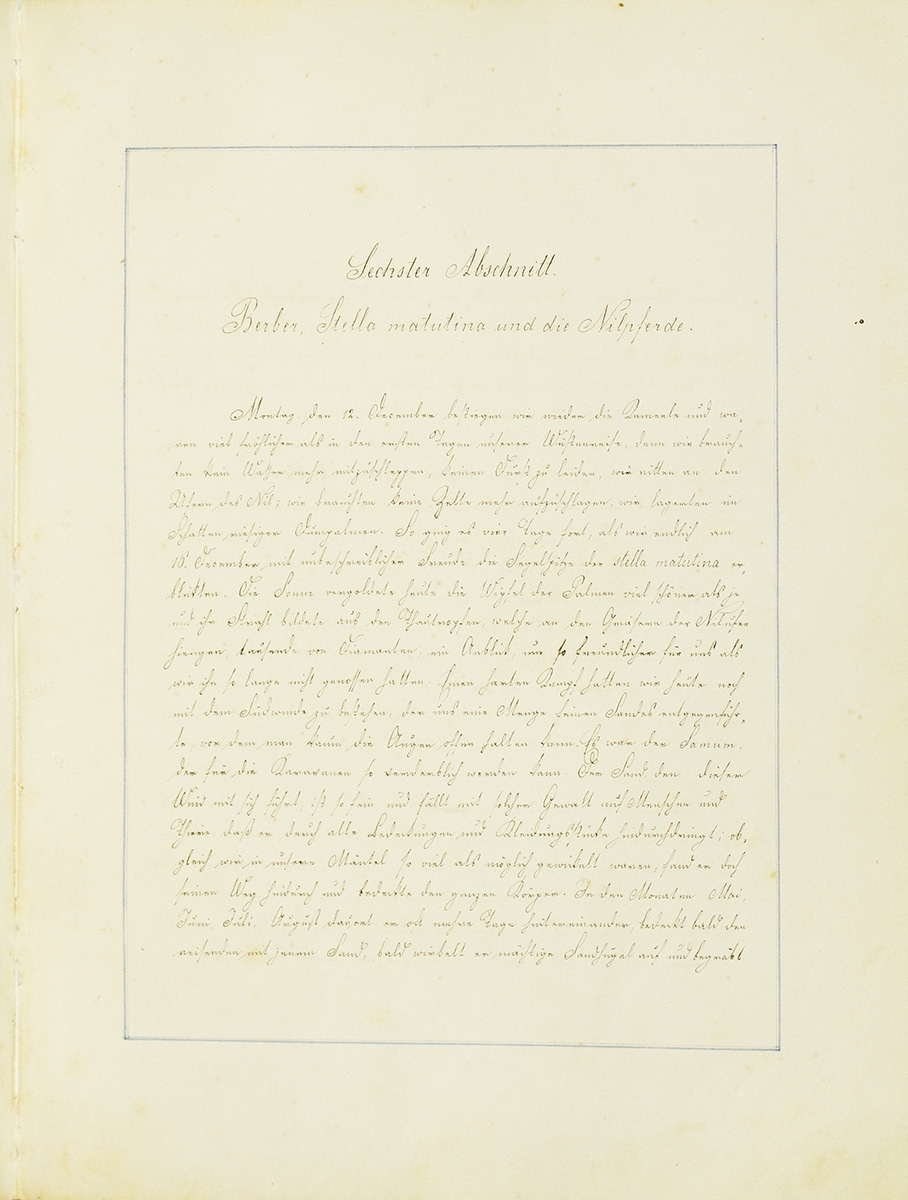 Sechster Abschnitt.
Berber, Stella matutina und die Nilpferde.
Montag, den 12. December bestiegen wir wieder die Kameele und wa¬
ren viel fröhlicher als in den ersten Tagen unserer Wüstenreise, denn wir brauch¬
ten kein Wasser mehr mitzuschleppen, keinen Durst zu leiden, wir ritten an den
Ufern des Nil; wir brauchten keine Zelte mehr aufzuschlagen, wir lagerten im
Schatten riesiger Dumpalmen. So ging es vier Tage fort, als wir endlich am
16. December mit unbeschreiblicher Freude die Segelspitze der stella matutina er¬
blickten. Die Sonne vergoldete heute die Wipfel der Palmen viel schöner als je
und ihr Strahl bildete aus den Thautropfen, welche an den Gräsern der Nilufer
hiengen, tausende von Diamanten, ein Anblick, um so freundlicher für uns als
wir ihn so lange nicht genossen hatten. Einen harten Kampf hatten wir heute noch
mit dem Südwinde zu bestehen, der uns eine Menge feinen Sandes entgegenführ¬
te, vor dem man kaum die Augen offen halten kann. Es war der Samum,
der für die Karavanen so verderblich werden kann. Der Sand, den dieser
Wind mit sich führt, ist so fein und fällt mit solcher Gewalt auf Menschen und
Thiere, daß er durch alle Bedeckungen und Kleidungsstücke hindurchdringt; ob¬
gleich wir in unsere Mäntel so viel als möglich gewickelt waren, fand er doch
seinen Weg hindurch und bedeckte den ganzen Körper. In den Monaten Mai,
Juni, Juli, August dauert er oft mehre Tage hintereinander, bedeckt bald den
reisenden mit seinem Sand, bald wirbelt er mächtige Sandhügel auf und begräbt